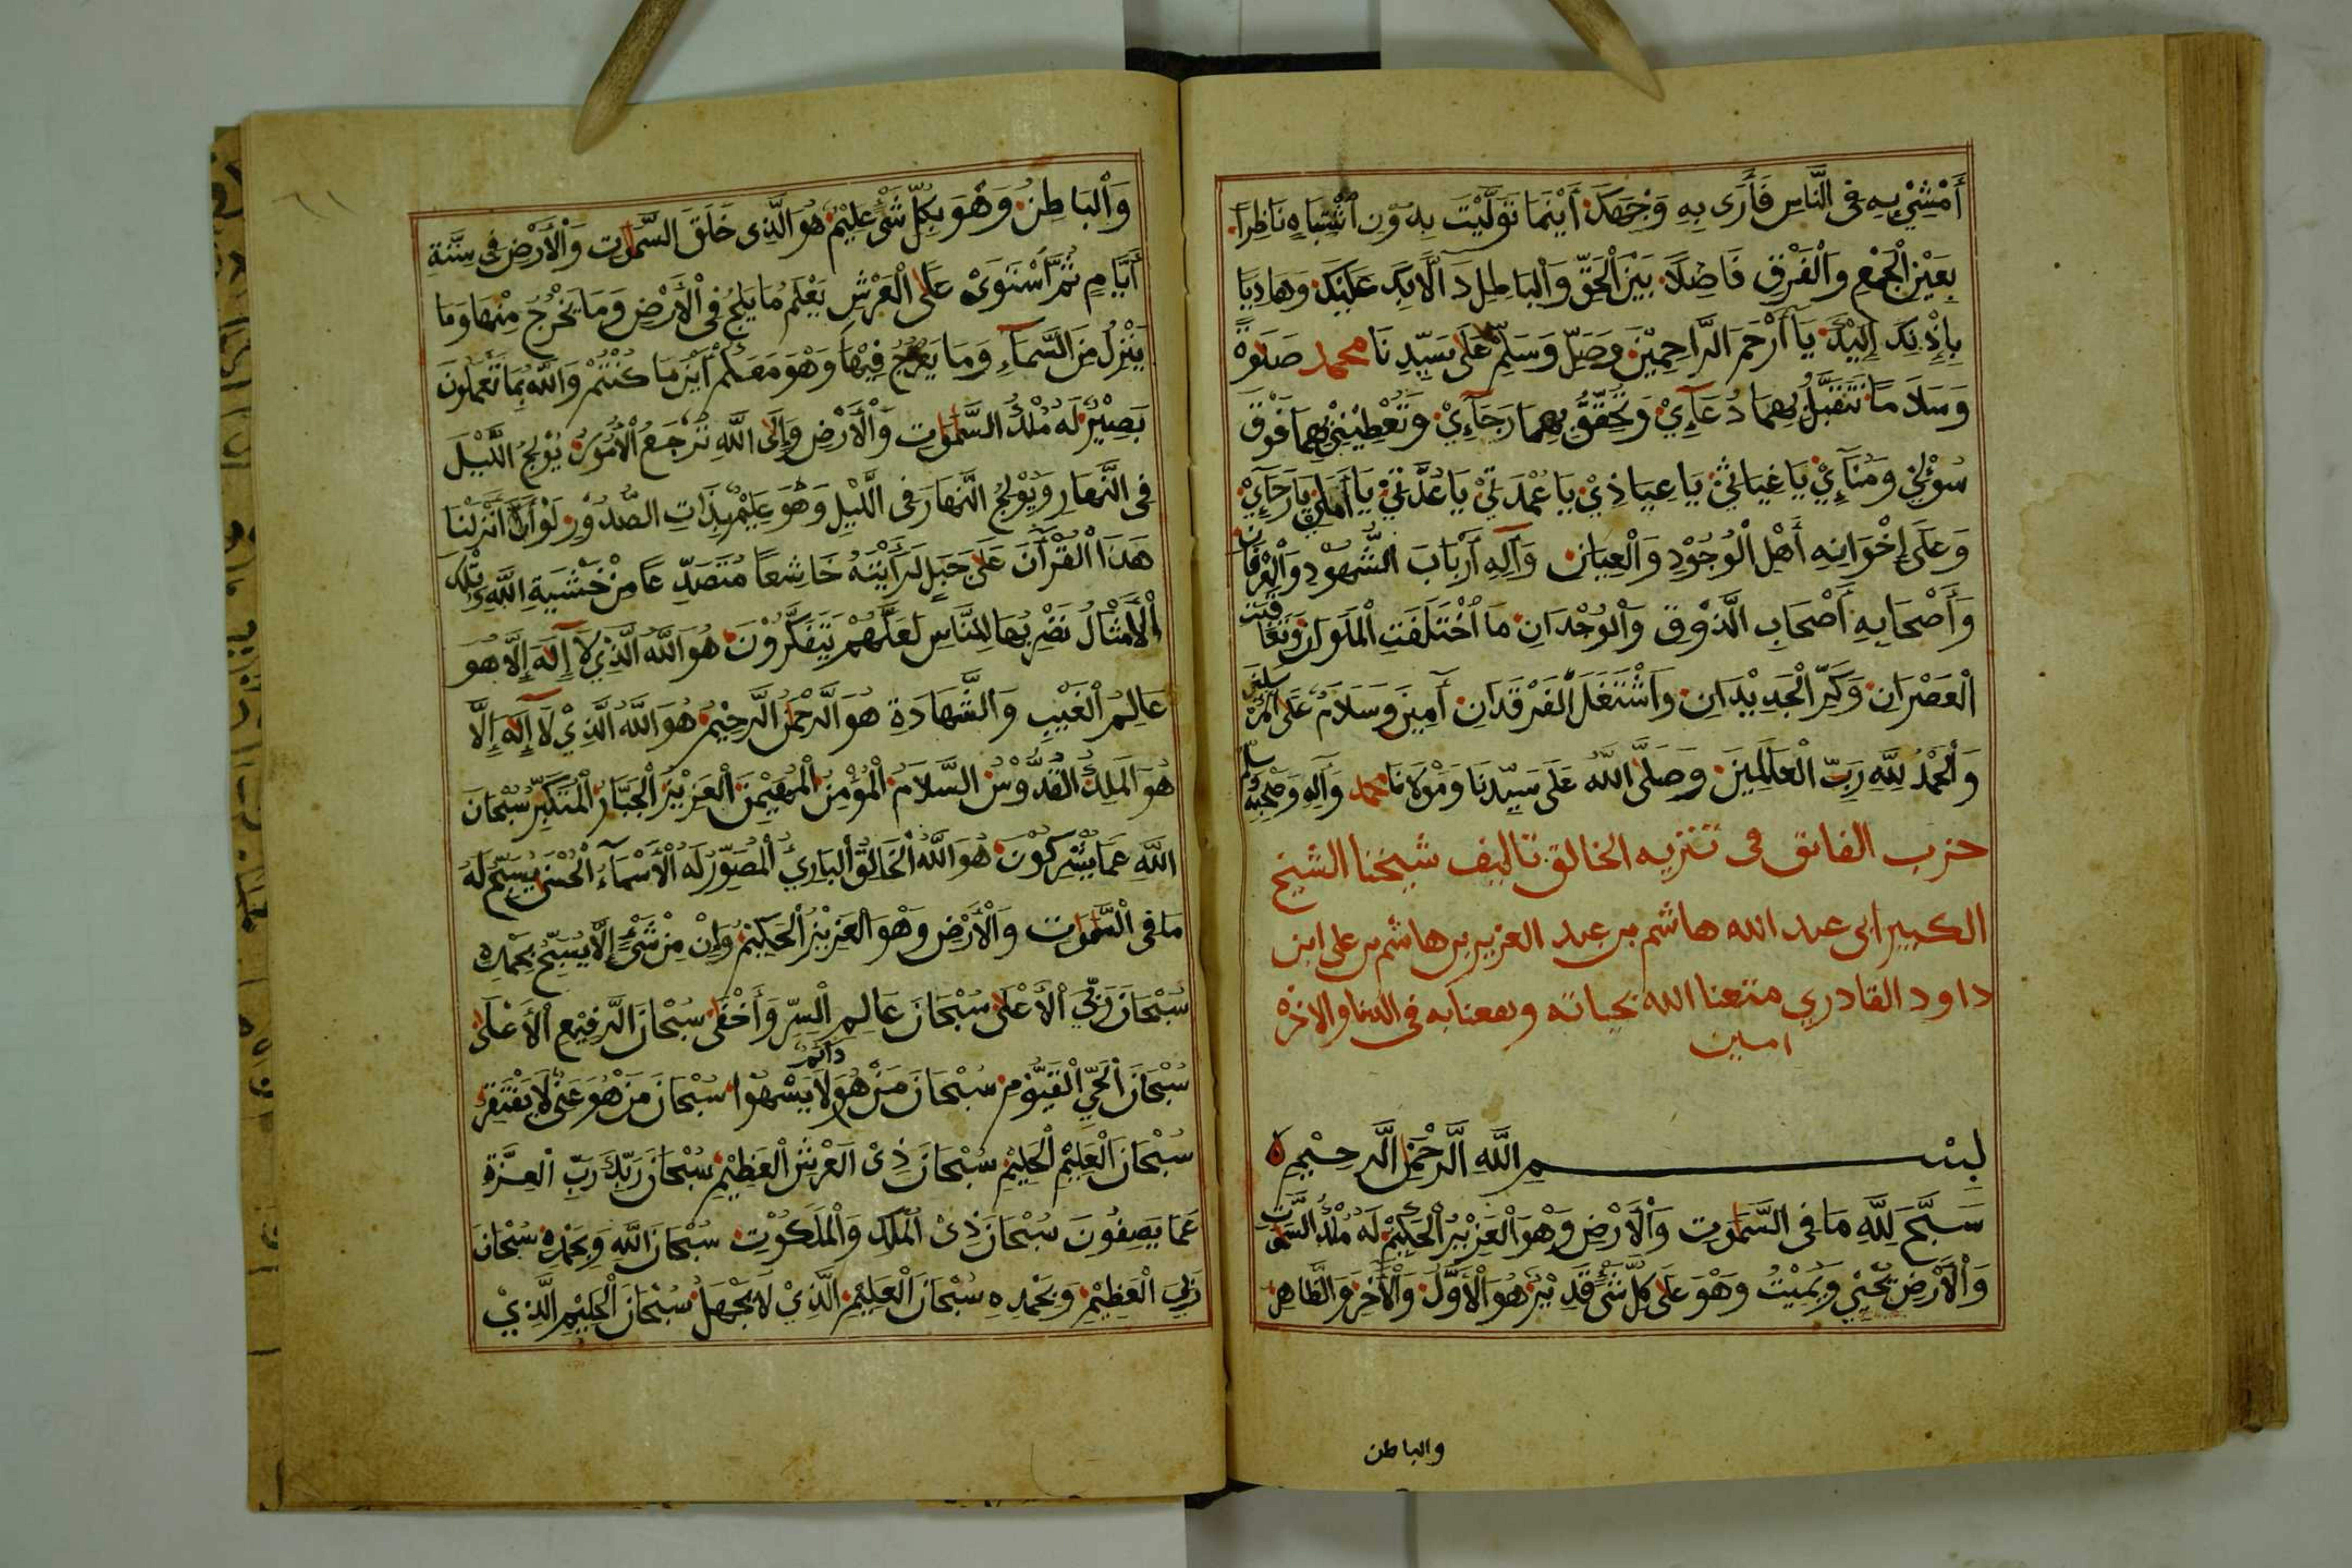 أَمْشِيْ بِهِ فِى النَّاسِ فَأَرَى بِهِ وَجْهَكَ أَيْنَمَا تَوَلَّيْتَ بِدُوْنِ اشْتِبَاهٍ نَاظِرًا
بِعَيْنِ الْجَمْعِ وَالْفَرْقِ فَاصِلًا بَيْنَ الْحَقِّ وَالْبَاطِلِ دَالًّا بِكَ عَلَيْكَ وَهَادِيًا
بِإِذْنِكَ إِلَيْكَ يَآ أَرْحَمَ الرَّاحِمِيْنَ وَصَلِّ وَسَلِّمْ عَلَى سَيِّدِنَا محمد صَلَوةً
وَسَلَامًا تَتَقَبَّلُ بِهِمَا دُعَآءِيْ وَتُحَقِّقُ بِهِمَا رَجَآءِيْ وَتُعْطِيْنِيْ بِهِمَا فَوْقَ
سُؤْلِيْ وَمُنَآءِيْ يَا غِيَاثِيْ يَا عِيَاذِيْ يَا عُمْدَتِيْ يَا عُدَّتِيْ يَا أَمَلِيْ يَا رَجَآءِيْ
وَعَلَى إِخْوَانِهِ أَهْلِ الْوُجُوْدِ وَالْعِيَانِ وَآلِهِ أَرْبَابِ الشُّهُوْدِ وَالْعِرْفَانِ
وَأَصْحَابِهِ أَصْحَابِ الذَّوْقِ وَالْوُجْدَانِ مَا اخْتَلَفَتِ الْمَلَوَانِ وَتَعَاقَبَتِ
الْعَصْرَانِ وَكَرَّ الْجَدِيْدَانِ وَاشْتَعَلَ الْفَرْقَدَانِ آمِيْنَ وَسَلَامٌ عَلَى الْمُرْسَلِيْنَ
وَالْحَمْدُ لِلَّهِ رَبِّ الْعَالَمِيْنَ وَصَلَّى اللَّهُ عَلَى سَيِّدِنَا وَمَوْلَانَا محمد وَآلِهِ وَصَحْبِهِ وسلم
حزب الفاتق فى تنزيه الخالق تاليف شيخنا الشيخ
الكبير ابى عبد الله هاشم بن عبد العزيز بن هاشم بن على ابن
داود القادري متعنا الله بحياته ونفعنا به فى الدنيا والاخره
امين
بِسْمِ اللَّهِ الرَّحْمَنِ الرَّحِيْمِ
سَبَّحَ لِلَّهِ مَا فِى السَّمَوَتِ وَالْأَرْضِ وَهْوَ الْعَزِيْزُ الْحَكِيْمُ لَهُ مُلْكُ السَّمَوَتِ
وَالْأَرْضِ يُحْيِيْ وَيُمِيْتُ وَهْوَ عَلَى كُلِّ شَىْءٍ قَدِيْرٌ هُوَ الْأَوَّلُ وَالْآخِرُ وَالظَّاهِرُ
والباطن
وَالْبَاطِنُ وَهْوَ بِكُلِّ شَىْءٍ عَلِيْمٌ هُوَ الَّذِى خَلَقَ السَّمَوَتِ وَالْأَرْضَ فِى سِتَّةِ
أَيَّامٍ ثُمَّ اسْتَوَى عَلَى الْعَرْشِ يَعْلَمُ مَا يَلِجُ فِى الْأَرْضِ وَمَا يَخْرُجُ مِنْهَا وَمَا
يَنْزِلُ مِنَ السَّمَآءِ وَمَا يَعْرُجُ فِيْهَا وَهْوَ مَعَكُمْ أَيْنَ مَا كُنْتُمْ وَاللَّهُ بِمَا تَعْمَلُونَ
بَصِيْرٌ لَهُ مُلْكُ السَّمَوَتِ وَالْأَرْضِ وَإِلَى اللَّهِ تُرْجَعُ الْأُمُوْرُ يُوْلِجُ اللَّيْلَ
فِى النَّهَارِ وَيُوْلِجُ النَّهَارَ فِى اللَّيْلِ وَهْوَ عَلِيْمٌ بِذَاتِ الصُّدُوْرِ لَوْ أَنْزَلْنَا
هَذَا الْقُرْآنَ عَلَى جَبَلٍ لَرَأَيْتَهُ خَاشِعًا مُتَصَدِّعًا مِنْ خَشْيَةِ اللَّهِ وَتِلْكَ
الْأَمْثَالُ نَضْرِبُهَا لِلنَّاسِ لَعَلَّهُمْ يَتَفَكَّرُوْنَ هُوَ اللَّهُ الَّذِيْ لَآ إِلَهَ إِلَّا هُوَ
عَالِمُ الْغَيْبِ وَالشَّهَادَةِ هُوَ الرَّحْمَنُ الرَّحِيْمُ هُوَ اللَّهُ الَّذِيْ لَآ إِلَهَ إِلَّا
هُوَ الْمَلِكُ الْقُدُّوْسُ السَّلَامُ الْمُؤْمِنُ الْمُهَيْمِنُ الْعَزِيْزُ الْجَبَّارُ الْمُتَكَبِّرُ سُبْحَانَ
اللَّهِ عَمَّا يُشْرِكُوْنَ هُوَ اللَّهُ الْخَالِقُ الْبَارِئُ الْمُصَوِّرُ لَهُ الْأَسْمَآءُ الْحُسْنَى يُسَبِّحُ لَهُ
مَا فِى السَّمَوَتِ وَالْأَرْضِ وَهْوَ الْعَزِيْزُ الْحَكِيْمُ وَإِنْ مِنْ شَىْءٍ إِلَّا يُسَبِّحُ بِحَمْدِهِ
سُبْحَانَ رَبِّيَ الْأَعْلَى سُبْحَانَ عَالِمِ السِّرِّ وَأَخْفَى سُبْحَانَ الرَّفِيْعِ الْأَعْلَى
سُبْحَانَ الْحَيِّ الْقَيُّوْمِ سُبْحَانَ مَنْ هُوَ دَائِمٌ لَا يَسْهُوْا سُبْحَانَ مَنْ هُوَ غَنِىٌّ لَا يَفْتَقِرُ
سُبْحَانَ الْعَلِيْمِ الْحَلِيْمِ سُبْحَانَ ذِى الْعَرْشِ الْعَظِيْمِ سُبْحَانَ رَبِّكَ رَبِّ الْعِزَّةِ
عَمَّا يَصِفُونَ سُبْحَانَ ذِىْ الْمُلْكِ وَالْمَلَكُوْتِ سُبْحَانَ اللَّهِ وَبِحَمْدِهِ سُبْحَانَ
رَبِّيَ الْعَظِيْمِ وَبِحَمْدِهِ سُبْحَانَ الْعَلِيْمِ الَّذِيْ لَا يَجْهَلُ سُبْحَانَ الْحَلِيْمِ الَّذِيْ